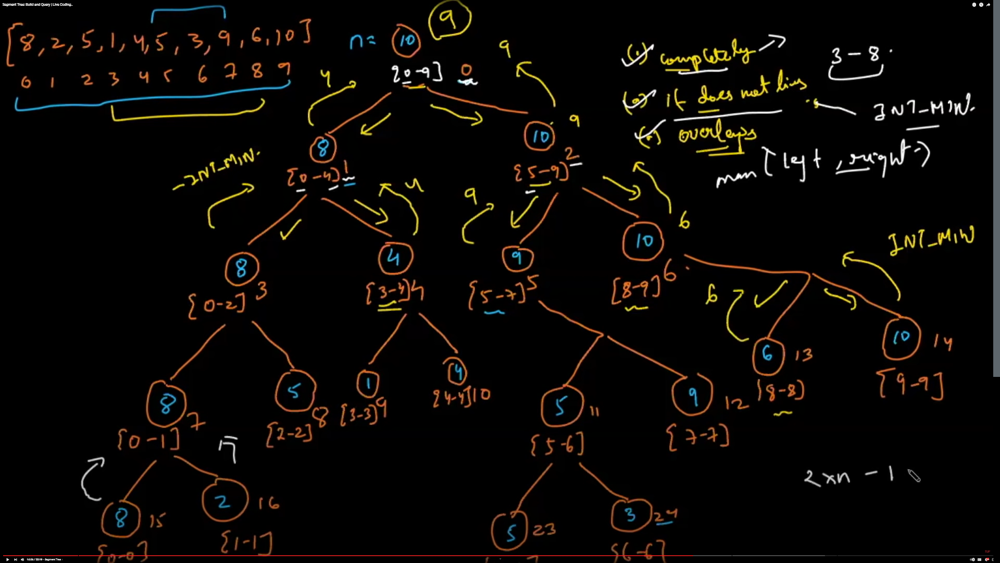 Segment Tree: Build and Query | Live Coding..
[8, 2, 5, 1, 4, 5, 3, 9, 6, 10]
0 1 2 3 4 5 6 7 8 9
n = 10
9
[0-9] 0
4
9
(.) completely
3-8.
(.) if does not lies
INT_MIN.
(.) overlaps
max (left, right)
8
[0-4] 1
10
[5-9] 2
9
-INT_MIN.
4
9
6
INT_MIN
8
[0-2] 3
4
[3-4] 4
9
[5-7] 5
10
[8-9] 6
6
8
[0-1] 7
5
[2-2] 8
1
[3-3] 9
4
[4-4] 10
5
11
[5-6]
9
12
[7-7]
6
13
[8-8]
10
14
[9-9]
8
15
[0-0]
2
16
[1-1]
5
23
3
24
[6-6]
2xn - 1